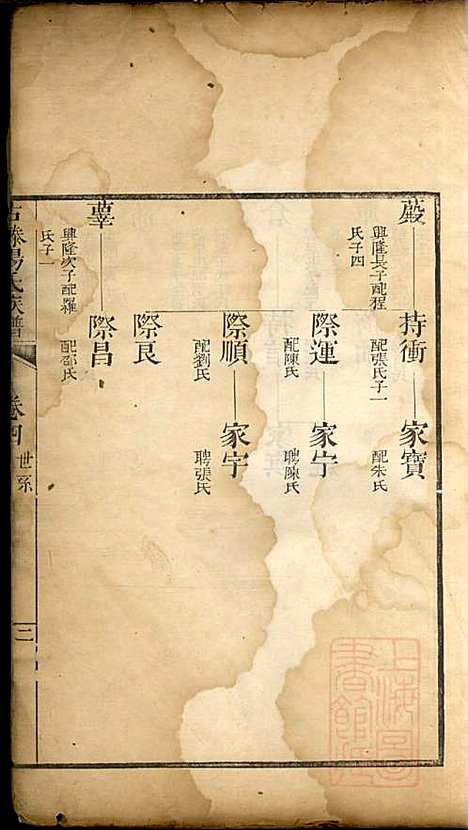 興隆長子配程
氏子四
持衝
配張氏子一
家寶
配朱氏
際運
配陳氏
家宁
聘陳氏
際順
配劉氏
家宇
聘張氏
際良
興隆次子配羅
氏子一
際昌
配邵氏
氏族譜
卷四
世系
三
上海圖
書館藏